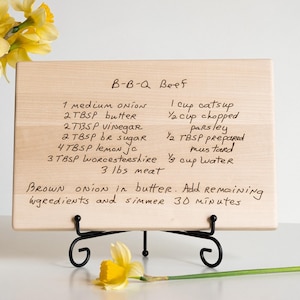 B-B-Q Beef
1 medium onion 1 cup catsup
2 TBSP butter 1/2 cup chopped
2 TBSP vinegar parsley
2 TBSP br sugar 1/2 TBSP prepared
4 TBSP lemon jc mustard
3 TBSP Worcestershire 1/2 cup water
3 lbs meat
Brown onion in butter. Add remaining
ingredients and simmer 30 minutes